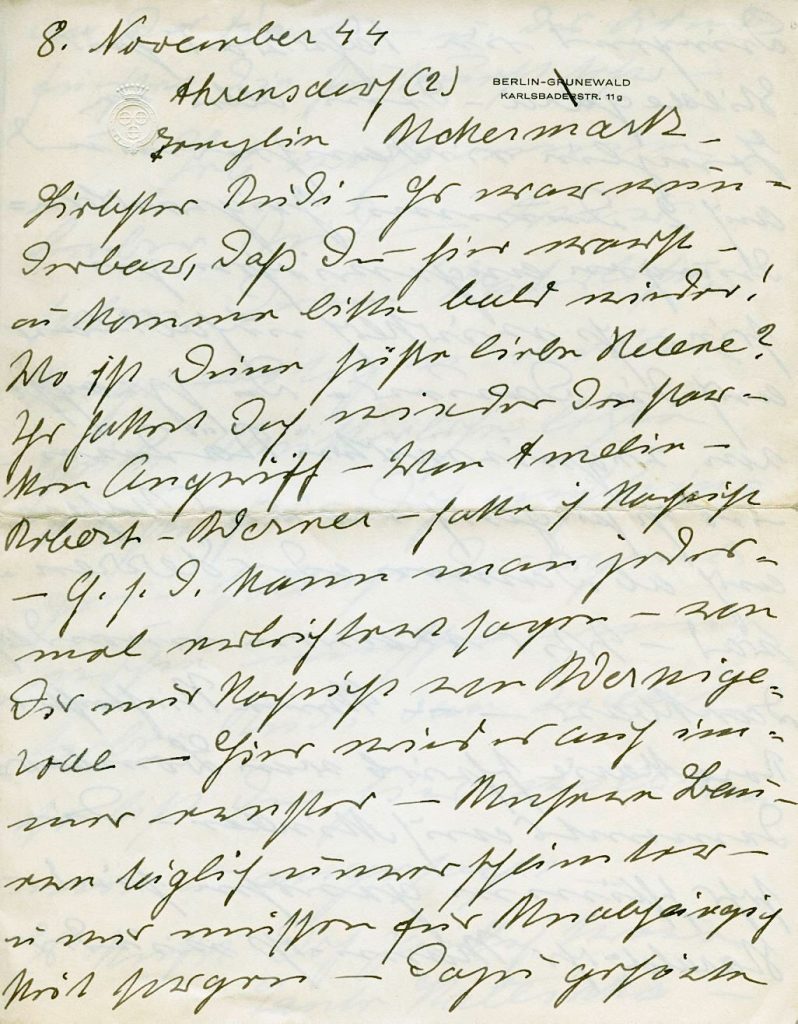 8. November 44
Ahrensdorf (2)
BERLIN-GRUNEWALD
KARLSBADERSTR. 11g
Templin Uckermark –
Liebster Rudi – Es war wun-
derbar, daß Du hier warst –
u komme bitte bald wieder!
Wo ist Deine süße liebe Helene?
Ihr hattet doch wieder den star-
ken Angriff – Von Amelie –
Robert – Werner – hatte ich Nachricht
– G. s. D. kann man jedes-
mal erleichtert sagen – von
Dir nur Nachricht von Wernige-
rode – Hier wird es auch im-
mer ernster – Unsere Bau-
ern täglich unverschämter –
u wir müssen für Unabhängig
keit sorgen – Dazu gehörte